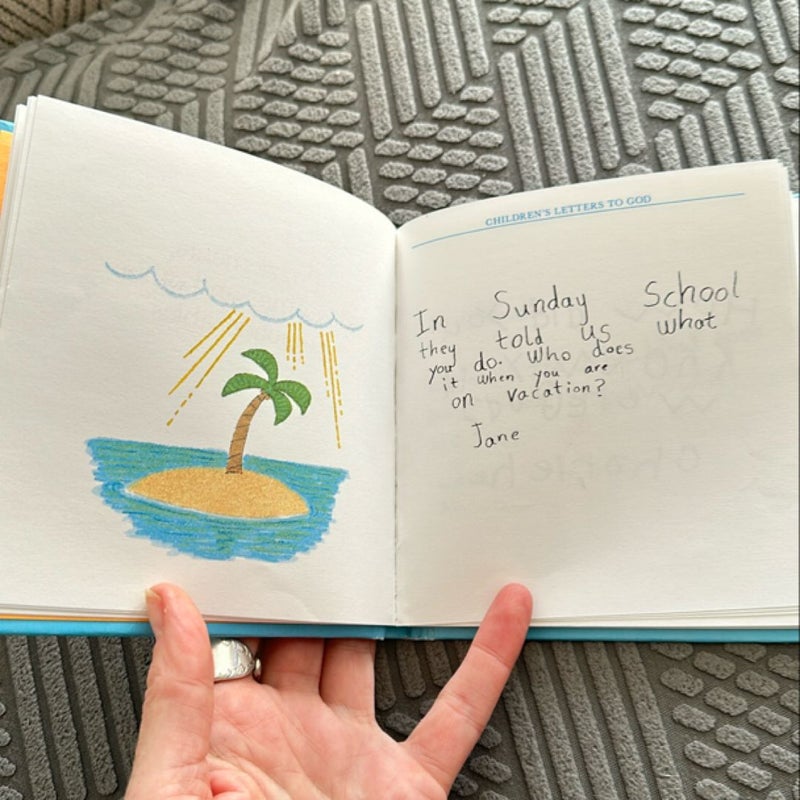 CHILDREN'S LETTERS TO GOD
In Sunday School
they told us what
you do. Who does
it when you are
on vacation?
Jane